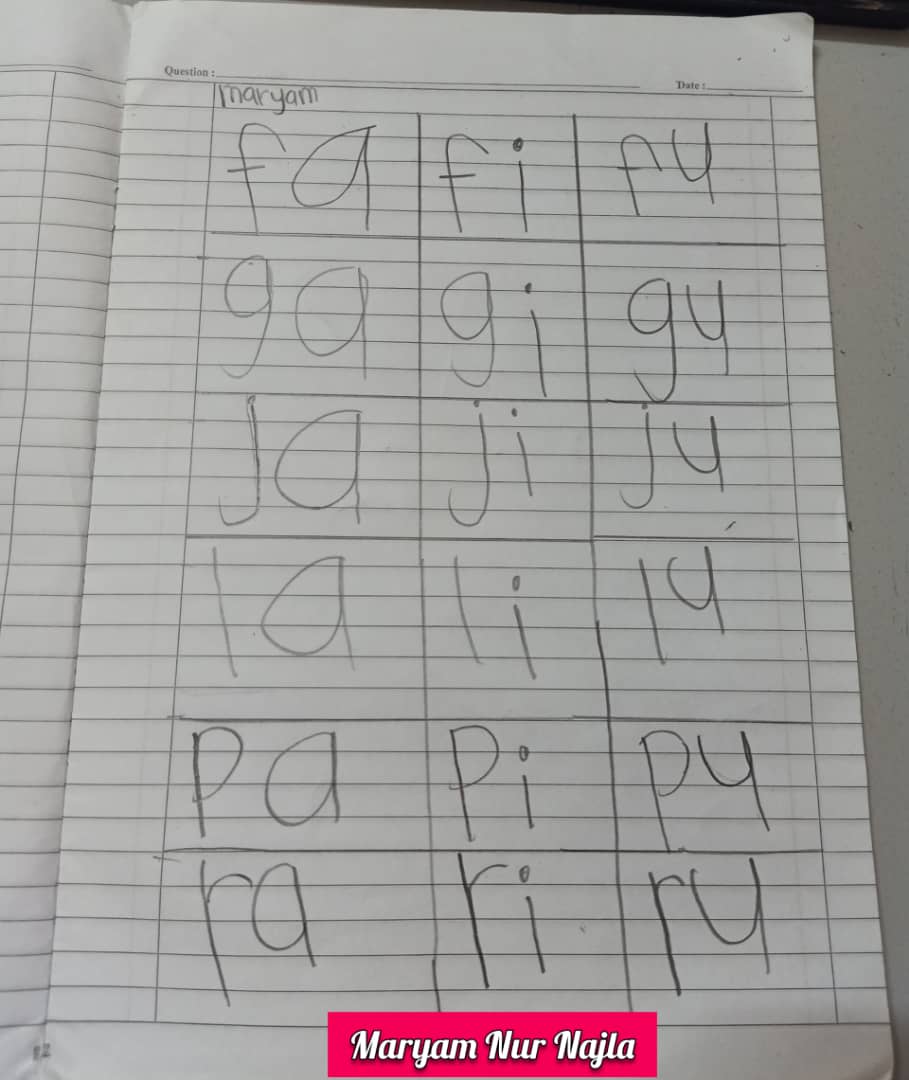 Question :
Date :
maryam
fa fi fu
ga gi gu
ja ji ju
la li lu
pa pi pu
ra ri ru
Maryam Nur Najla